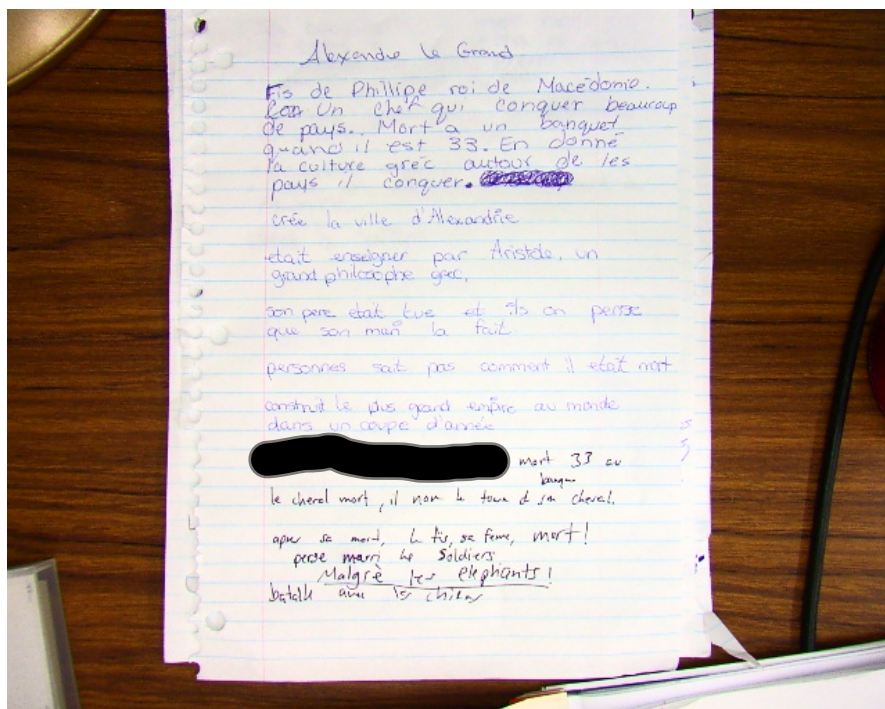 Alexandre le Grand
Fis de Phillipe roi de Macédonie.
Un chef qui conquer beaucoup
de pays.. Mort a un banquet
quand il est 33. En donné
la culture grèc autour de les
pays il conquer.
crée la ville d'Alexandrie
était enseigner par Aristote, un
grand philosophe grec,
son pere etait tue et ils on pense
que son man la fait
personnes sait pas comment il etait mort
construit le plus grand empire au monde
dans un coupe d'année
mort 33 au
banque
le cheval mort, il nom le town d son cheval.
apres sa mort, le fis, sa feme, mort!
perse marri he Soldiers
Malgrè les elephants!
batalle avec les chiens